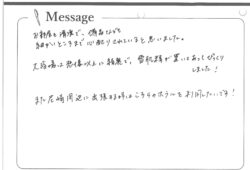 Message
お部屋も清潔で、備品なども
細かいところまで心配りされていると思いました。
大浴場は想像以上に綺麗で、雪肌精が置いてあってびっくり
しました!
また尼崎周辺に出張する時はこちらのホテルを利用したいです!